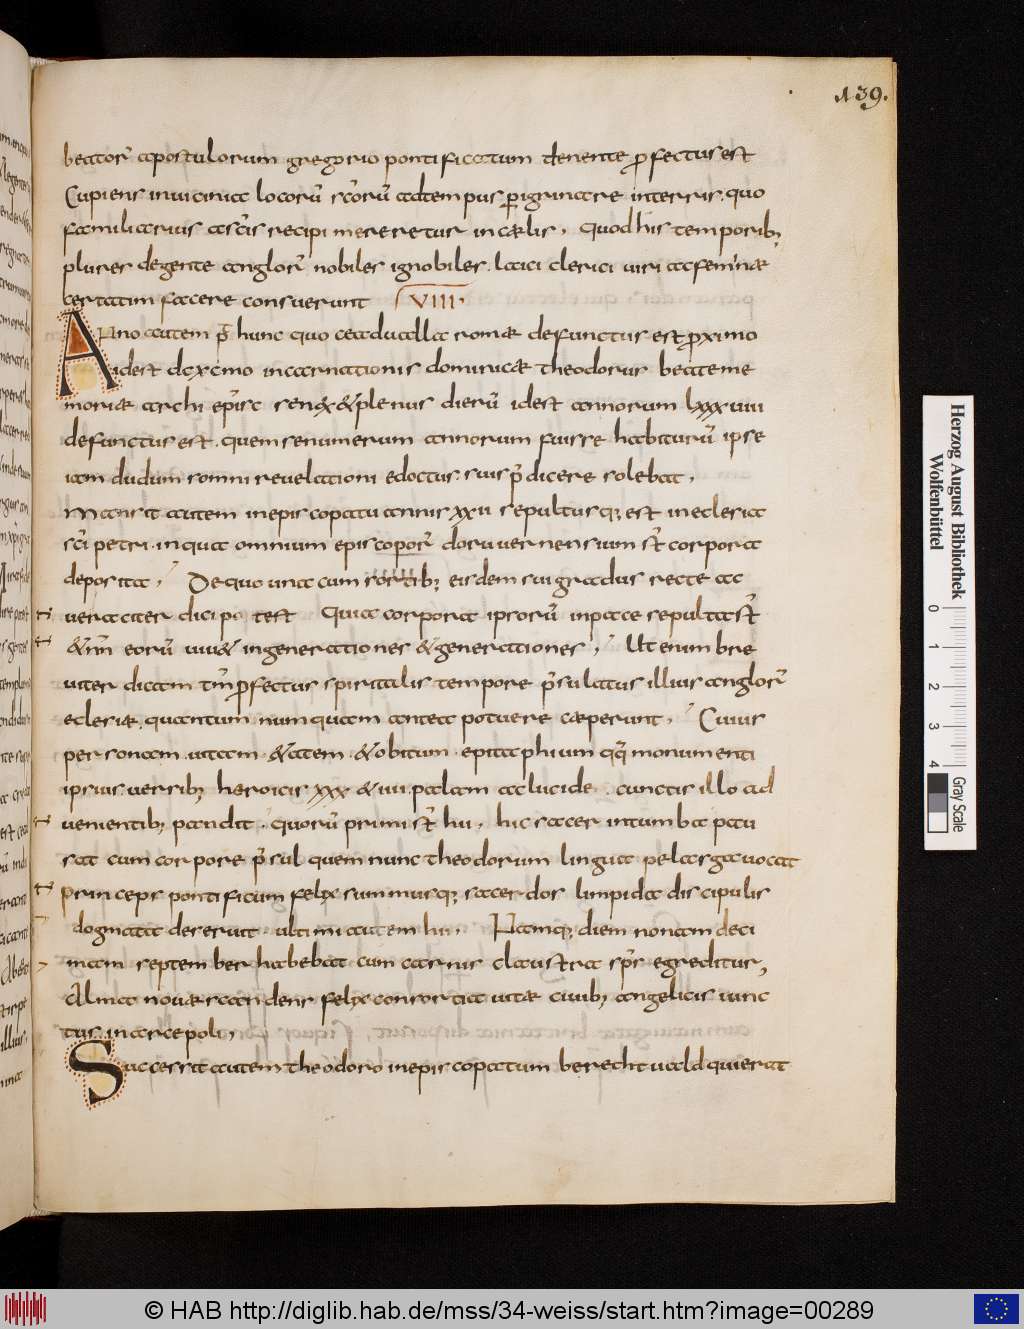 139.
beator̄ apostulorum gregorio pontificatum tenente ꝓfectus est
Cupiens in uicinia locorū sc̄orū ad tempus ꝑigrinare in terris. quo
familiarius a sc̄is recipi mereretur in cælis, quod his temporib;
plures de gente anglor̄ nobiles ignobiles. laici clerici uiri ac feminæ
certatim facere consuerunt VIII.
Anno autem p̄ hunc quo ceadualla romæ defunctus est ꝓximo
id est dcxcmo incarnationis dominicæ theodorus beatę me
moriæ archi epīsc senex & plenus dierū id est annorum lxxxuiii
defunctus est. quem se numerum annorum fuisse habiturū ipse
iam dudum somni reuelationi edoctus. suis p̄dicere solebat,
mansit autem in episcopatu annis xxii sepultusq; est in eclesia
sc̄i petri. in qua omnium episcopor̄ doruuernensium st̄ corpora
deposita, De quo una cum sortib; eisdem sui gradus recte ac
ueraciter dici potest Quia corpora ipsorū in pace sepulta st̄
& nn̄ eorū uiu& in generationes & generationes, Ut enim bre
uiter dicam tm̄ ꝓfectus spiritalis tempore p̄sulatus illius anglor̄
eclesiæ. quantum numquam antea potuere cæperunt, Cuius
personam. uitam. &atem. & obitum. epitaphium qq̄ monumenti
ipsius uersib; heroicis xxx & iiii. palam ac lucide. cunctis illo ad
uenientib; pandit. quorū primi st̄ hii, hic sacer in tumba pau
sat cum corpore p̄sul quem nunc theodorum lingua pelasga uocat
princeps pontificum felix summusq; sacerdos limpida discipulis
dogmata deseruit. ultimi autem hii, Namq; diem nonam deci
mam september habebat cum carnis claustra sp̄s egreditur,
Alma nouæ scandens felix consortia uitæ ciuib; angelicis iunc
tus in arce poli,
Successit autem theodoro in episcopatum berechtuald qui erat
Herzog August Bibliothek
Wolfenbüttel
0 1 2 3 4
Gray Scale
© HAB http://diglib.hab.de/mss/34-weiss/start.htm?image=00289